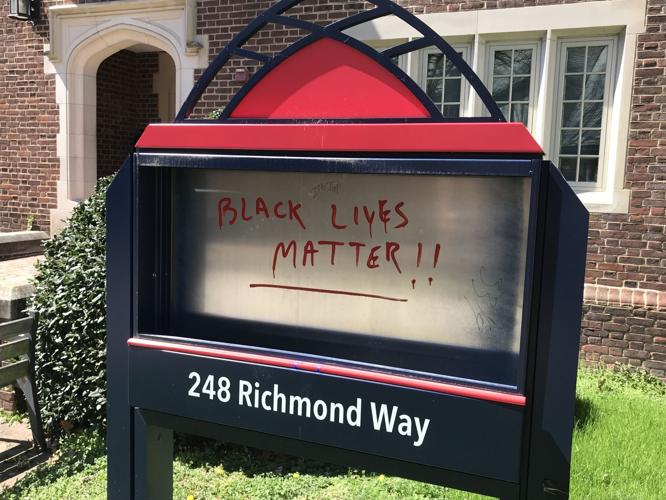 BLACK LIVES
MATTER!!
248 Richmond Way